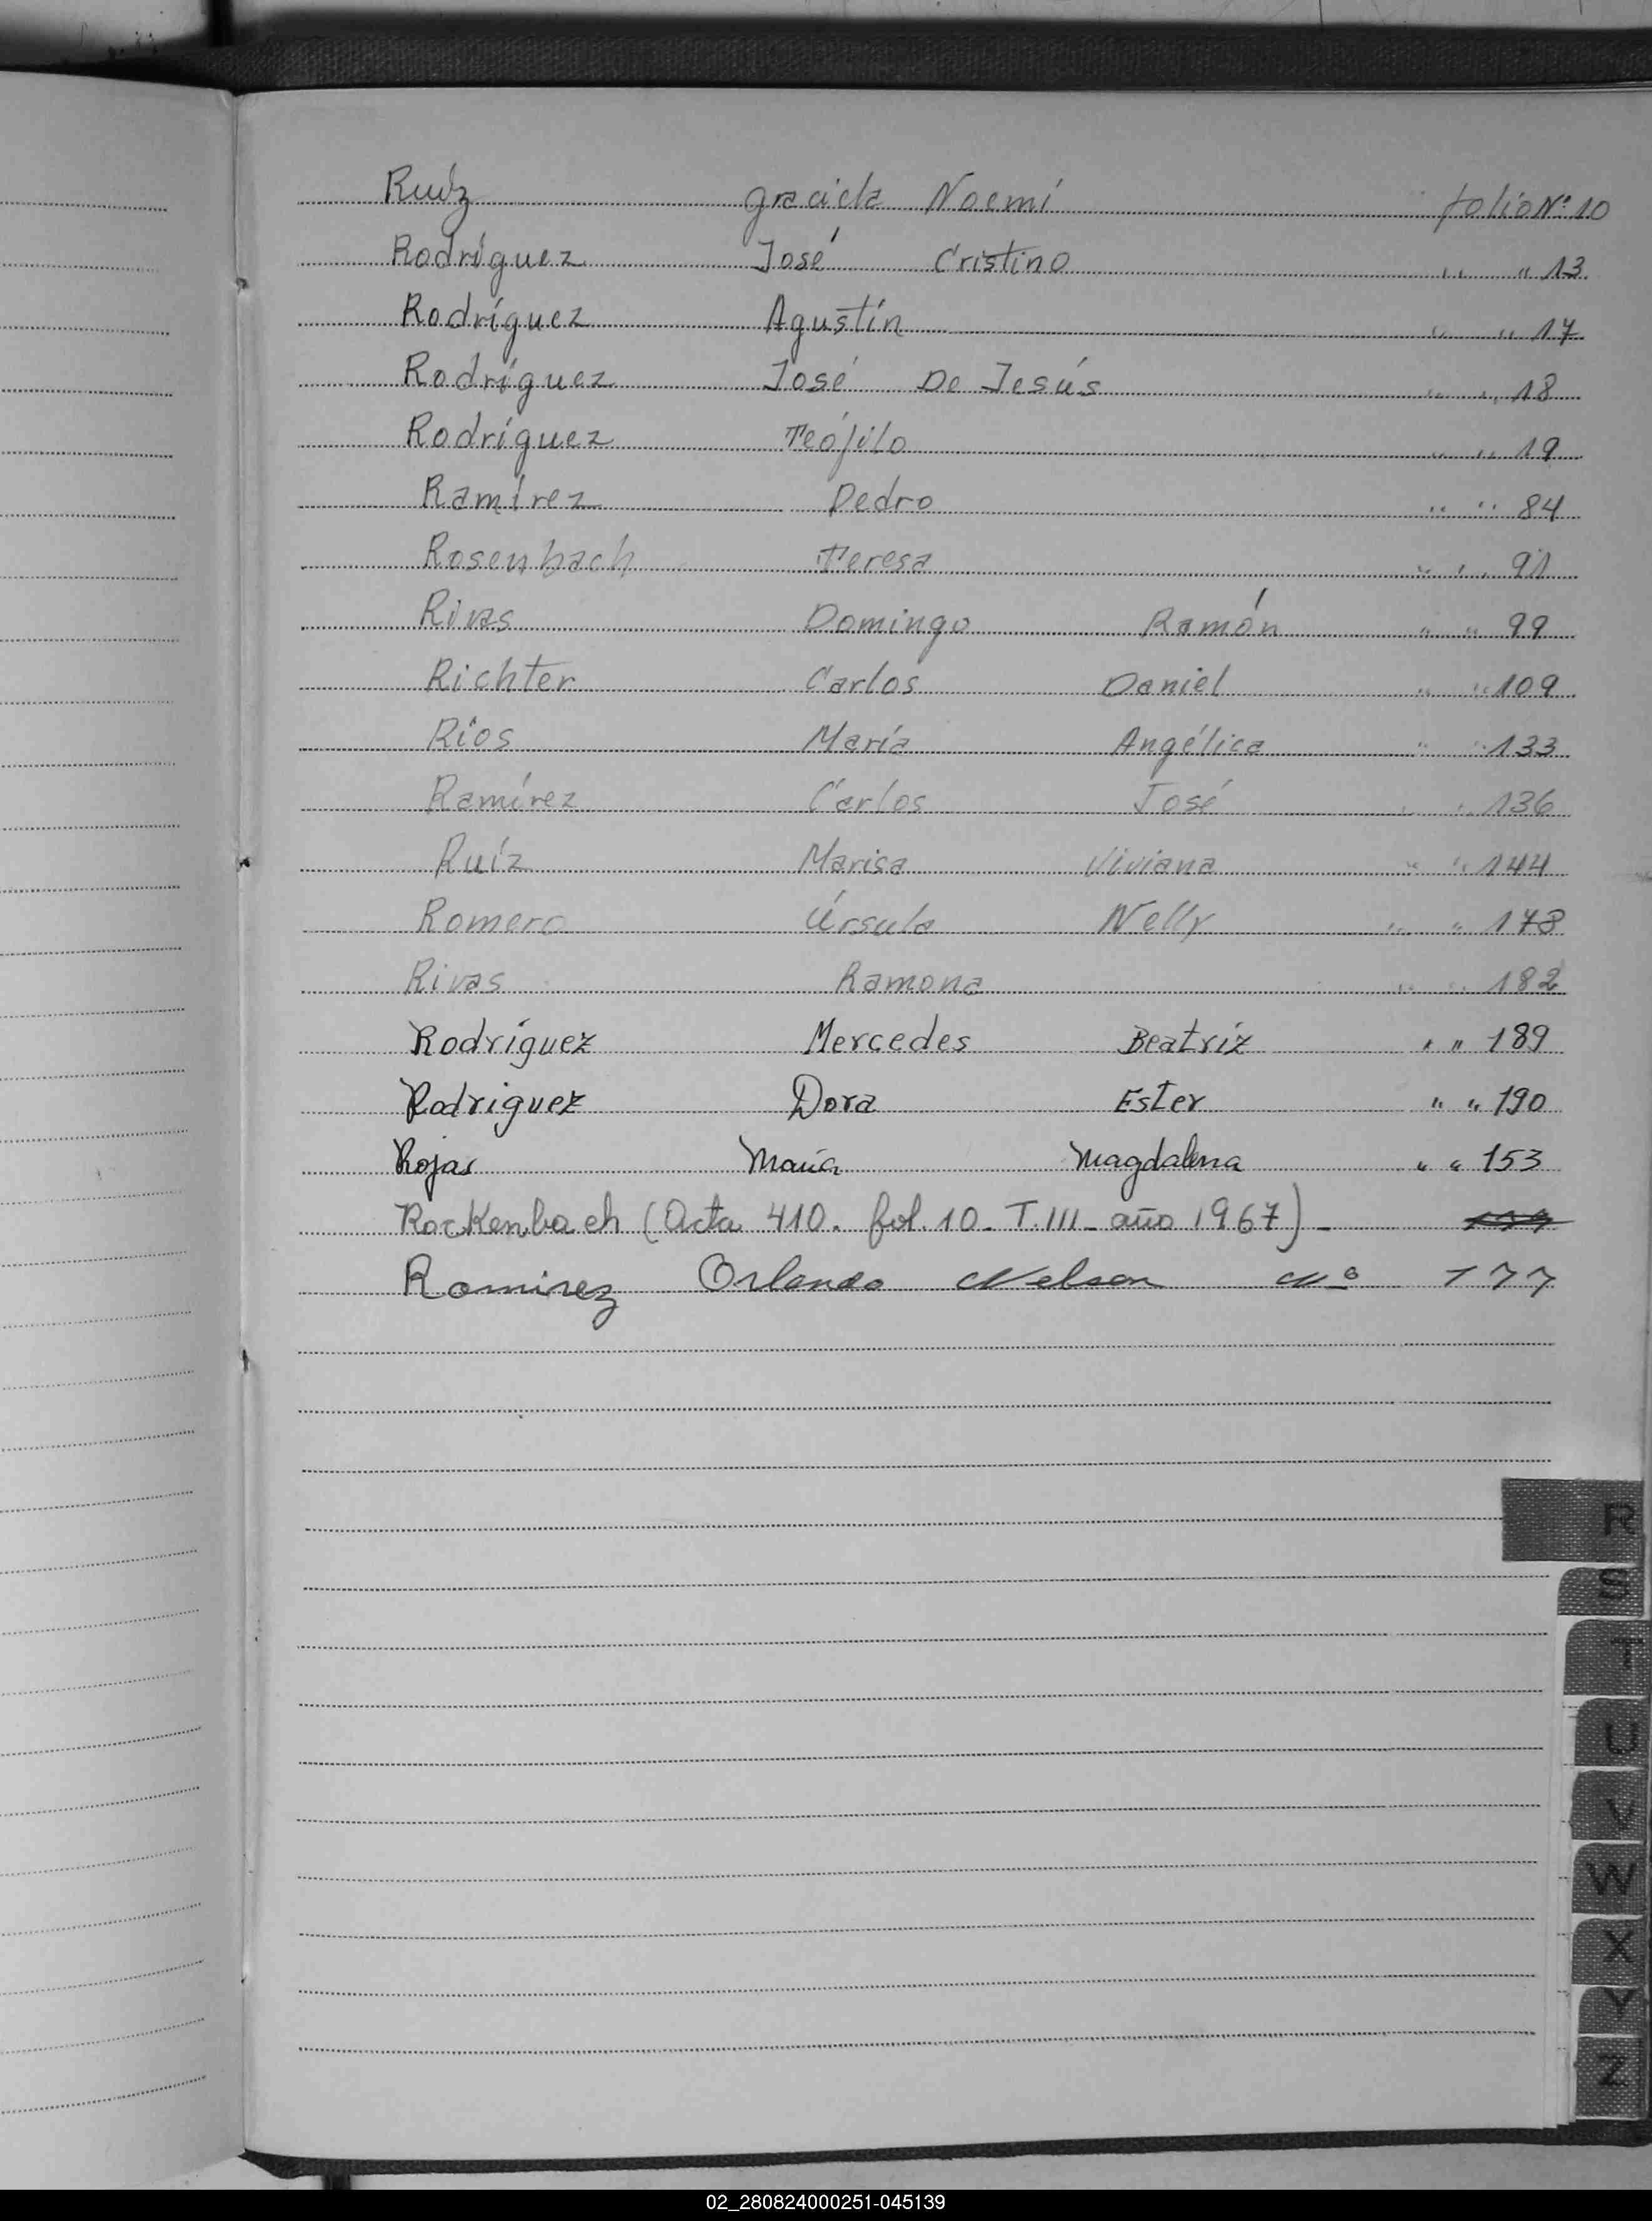 Ruíz Graciela Noemí folio Nº 10
Rodríguez José Cristino " " 13
Rodríguez Agustín " " 17
Rodríguez José De Jesús " " 18
Rodríguez Teófilo " " 19
Ramírez Pedro " " 84
Rosenbach Teresa " " 91
Rivas Domingo Ramón " " 99
Richter Carlos Daniel " " 109
Ríos María Angélica " " 133
Ramírez Carlos José " " 136
Ruíz Marisa Viviana " " 144
Romero Úrsula Nelly " " 178
Rivas Ramona " " 182
Rodríguez Mercedes Beatríz " " 189
Rodriguez Dora Ester " " 190
Rojas María Magdalena " " 153
Rockenbach (Acta 410. fol. 10_ T.III_ año 1967)_
Ramirez Orlando Nelson Nº 177
R
S
T
U
V
W
X
Y
Z
02_280824000251-045139